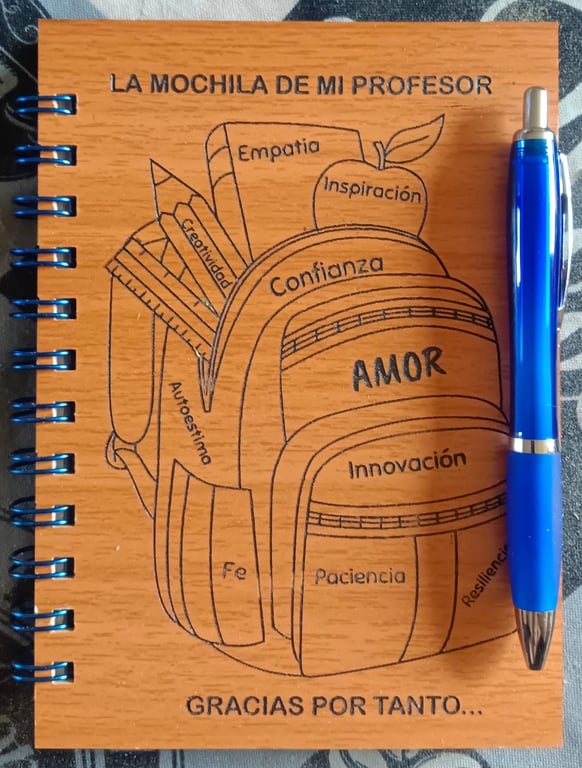 LA MOCHILA DE MI PROFESOR
Empatia
Inspiración
Creatividad
Confianza
AMOR
Autoestima
Innovación
Fe
Paciencia
Resiliencia
GRACIAS POR TANTO...